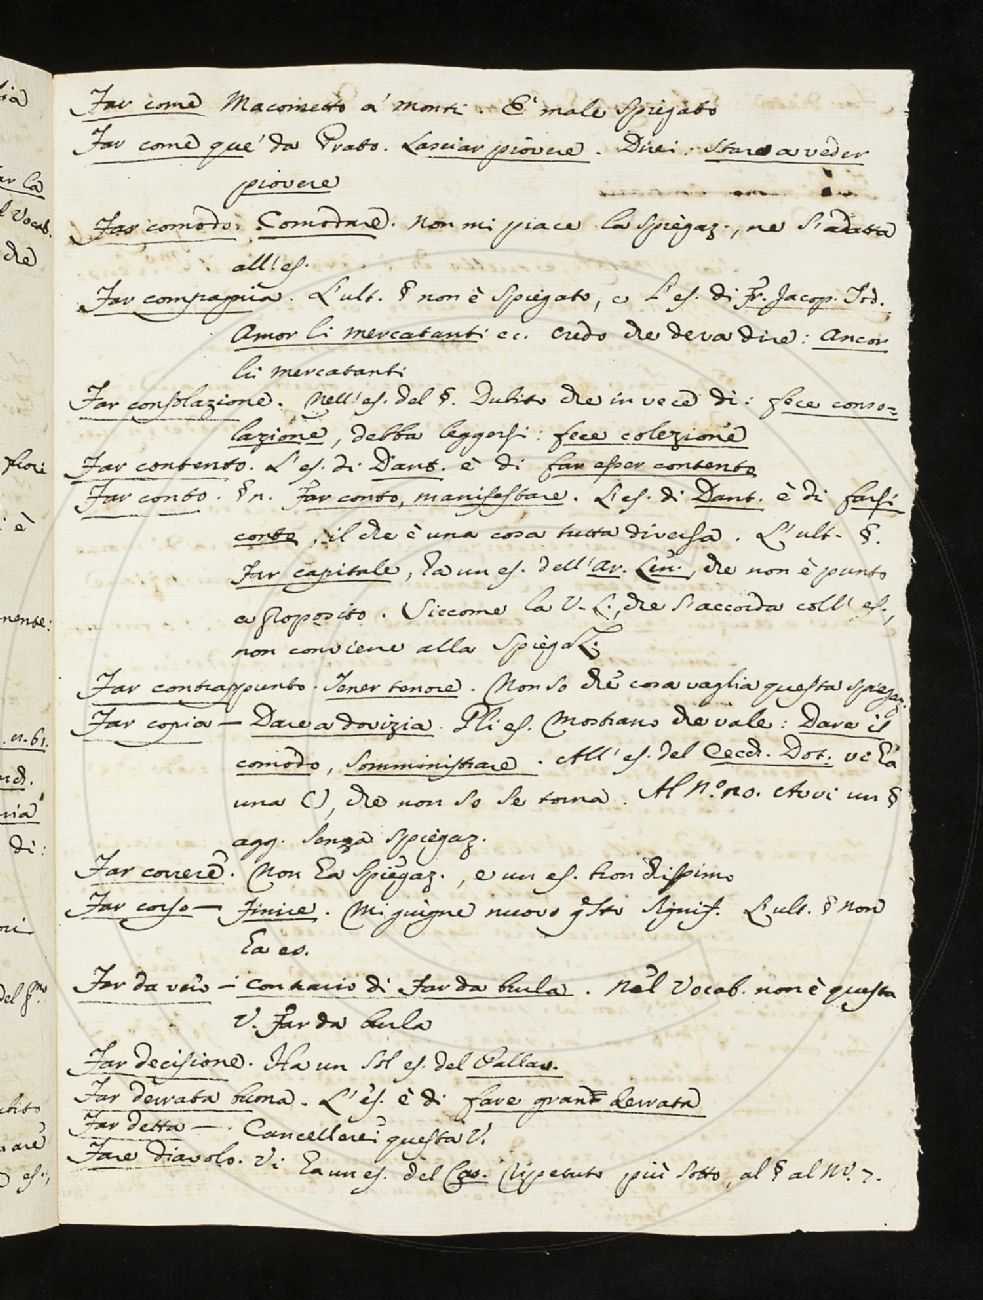 Far come Macometto a' monti. E' male spiegato
Far come que' da Prato. Lasciar piovere. Direi: stare a veder
piovere
Far comodo. Comodare. Non mi piace la spiegaz., ne s'adatta
all'es.
Far compagnia. L'ult. § non è spiegato, e l'es. di Fr. Jacop. Tod.
Amor li mercatanti ec. credo che deva dire: ancor
li mercatanti
Far consolazione. Nell'es. del §. Dubito che in vece di: fece conso=
lazione, debba leggersi: fece colezione
Far contento. L'es. di Dant. è di far esser contento
Far conto. § n. Far conto, manifestare. L'es. di Dant. è di farsi
conto, il che è una cosa tutta diversa. L'ult. §.
Far capitale, ha un es. dell'Ar. Len., che non è punto
a proposito. Siccome la V. L., che s'accorda coll'es.,
non conviene alla spiegaz.
Far contrappunto. Tener tenore. Non so che cosa vaglia questa spiegaz.
Far copia — Dare a dovizia. Gli es. mostrano che vale: Dare il
comodo, somministrare. All'es. del Cecch. Dot. ve ha
una (), che non so se torna. Al N.° 20. Avvi un §
agg. senza spiegaz.
Far correre. Non ha spiegaz., e un es. tiondissimo
Far corso — Finire. Mi giugne nuovo q.sto signif. L'ult. § non
ha es.
Far da vero — contrario di Far da burla. Nel Vocab. non è questa
V. Far da burla
Far decisione. Ha un sol es. del Pallav.
Far derrata buona. L'es. è di fare grande derrata
Far detta —. Cancellerei questa V.
Fare diavolo. Vi ha un es. del Cas. ripetuto più sotto, al § al Nº. 7.
ia
ar la
l Vocab.
che
flori
i è
nente:
n. 61.
di:
del g.no
ubito
are
es.,